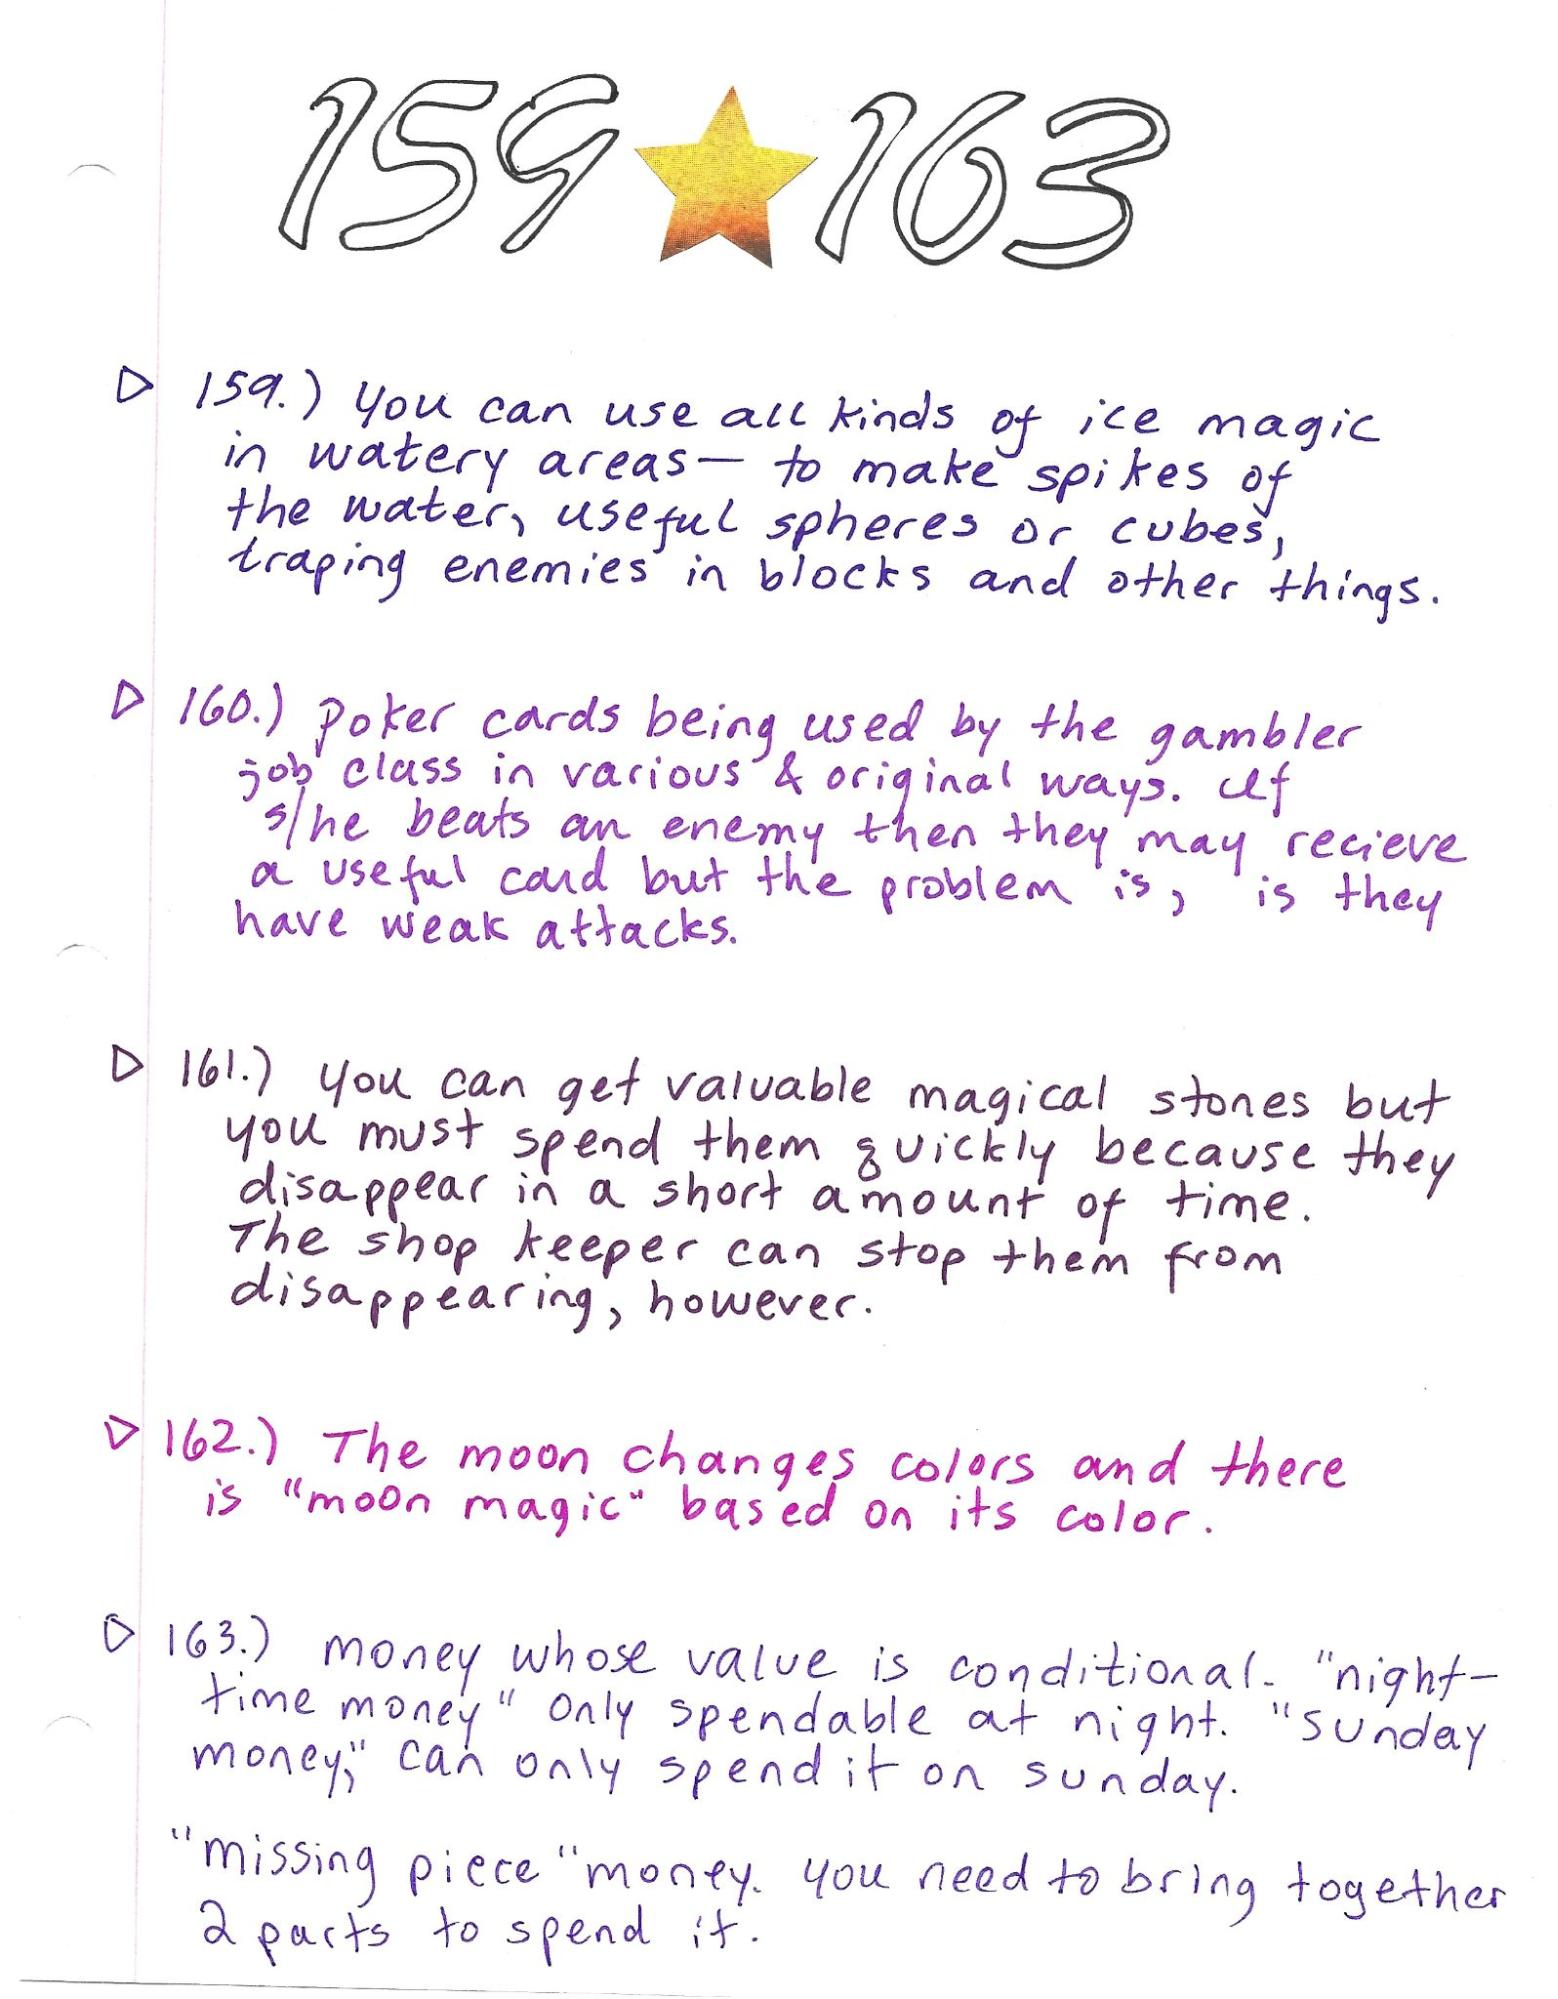 159 163
159.) you can use all kinds of ice magic
in watery areas— to make spikes of
the water, useful spheres or cubes,
traping enemies in blocks and other things.
160.) Poker cards being used by the gambler
job class in various & original ways. If
s/he beats an enemy then they may recieve
a useful card but the problem is, is they
have weak attacks.
161.) you can get valuable magical stones but
you must spend them quickly because they
disappear in a short amount of time.
The shop keeper can stop them from
disappearing, however.
162.) The moon changes colors and there
is "moon magic" based on its color.
163.) money whose value is conditional. "night-
time money" only spendable at night. "sunday
money," can only spend it on sunday.
"missing piece" money. you need to bring together
2 parts to spend it.